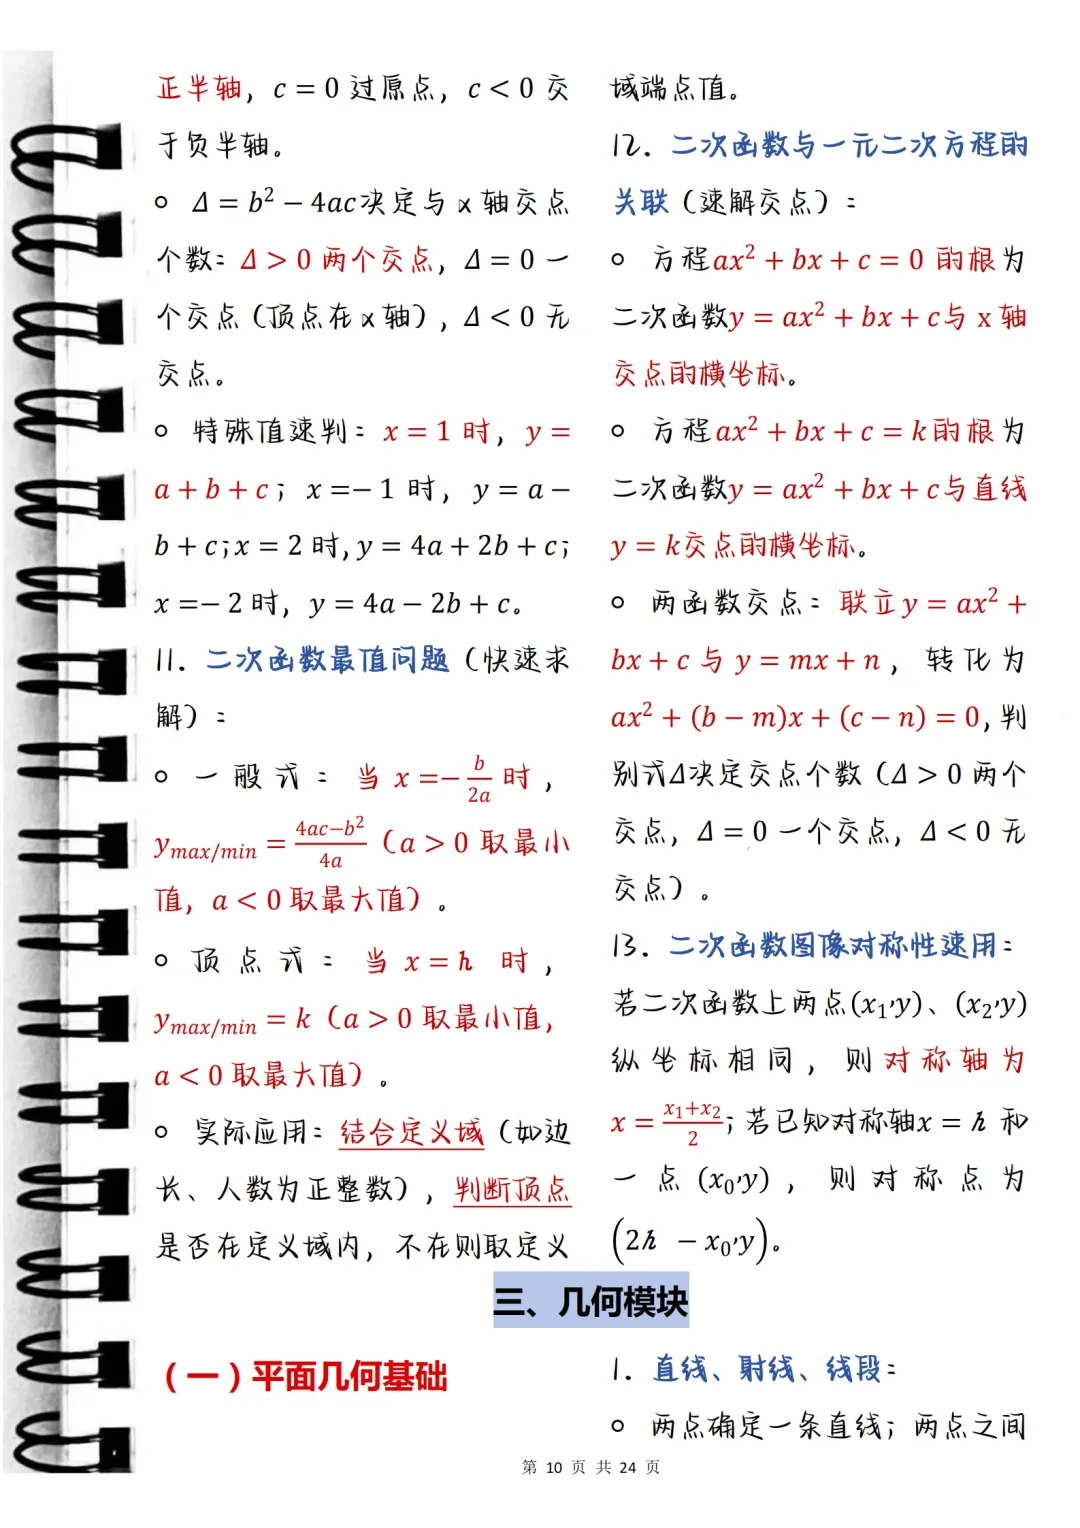 正半轴，c = 0 过原点，c < 0 交
于负半轴。
○ Δ = b² − 4ac决定与 x 轴交点
个数：Δ > 0 两个交点，Δ = 0 一
个交点（顶点在 x 轴），Δ < 0 无
交点。
○ 特殊值速判：x = 1 时，y =
a + b + c；x =− 1 时，y = a −
b + c；x = 2 时，y = 4a + 2b + c；
x =− 2 时，y = 4a − 2b + c。
11. 二次函数最值问题（快速求
解）：
○ 一般式：当 x =− b/2a 时，
y_max/min = (4ac−b²)/4a（a > 0 取最小
值，a < 0 取最大值）。
○ 顶点式：当 x = h 时，
y_max/min = k（a > 0 取最小值，
a < 0 取最大值）。
○ 实际应用：结合定义域（如边
长、人数为正整数），判断顶点
是否在定义域内，不在则取定义
域端点值。
12. 二次函数与一元二次方程的
关联（速解交点）：
○ 方程ax² + bx + c = 0 的根为
二次函数y = ax² + bx + c与 x 轴
交点的横坐标。
○ 方程ax² + bx + c = k的根为
二次函数y = ax² + bx + c与直线
y = k交点的横坐标。
○ 两函数交点：联立y = ax² +
bx + c 与 y = mx + n，转化为
ax² + (b − m)x + (c − n) = 0，判
别式Δ决定交点个数（Δ > 0 两个
交点，Δ = 0 一个交点，Δ < 0 无
交点）。
13. 二次函数图像对称性速用：
若二次函数上两点(x₁,y)、(x₂,y)
纵坐标相同，则对称轴为
x = (x₁+x₂)/2；若已知对称轴x = h 和
一点 (x₀,y)，则对称点为
(2h − x₀,y)。
三、几何模块
（一）平面几何基础
1. 直线、射线、线段：
○ 两点确定一条直线；两点之间
第 10 页 共 24 页